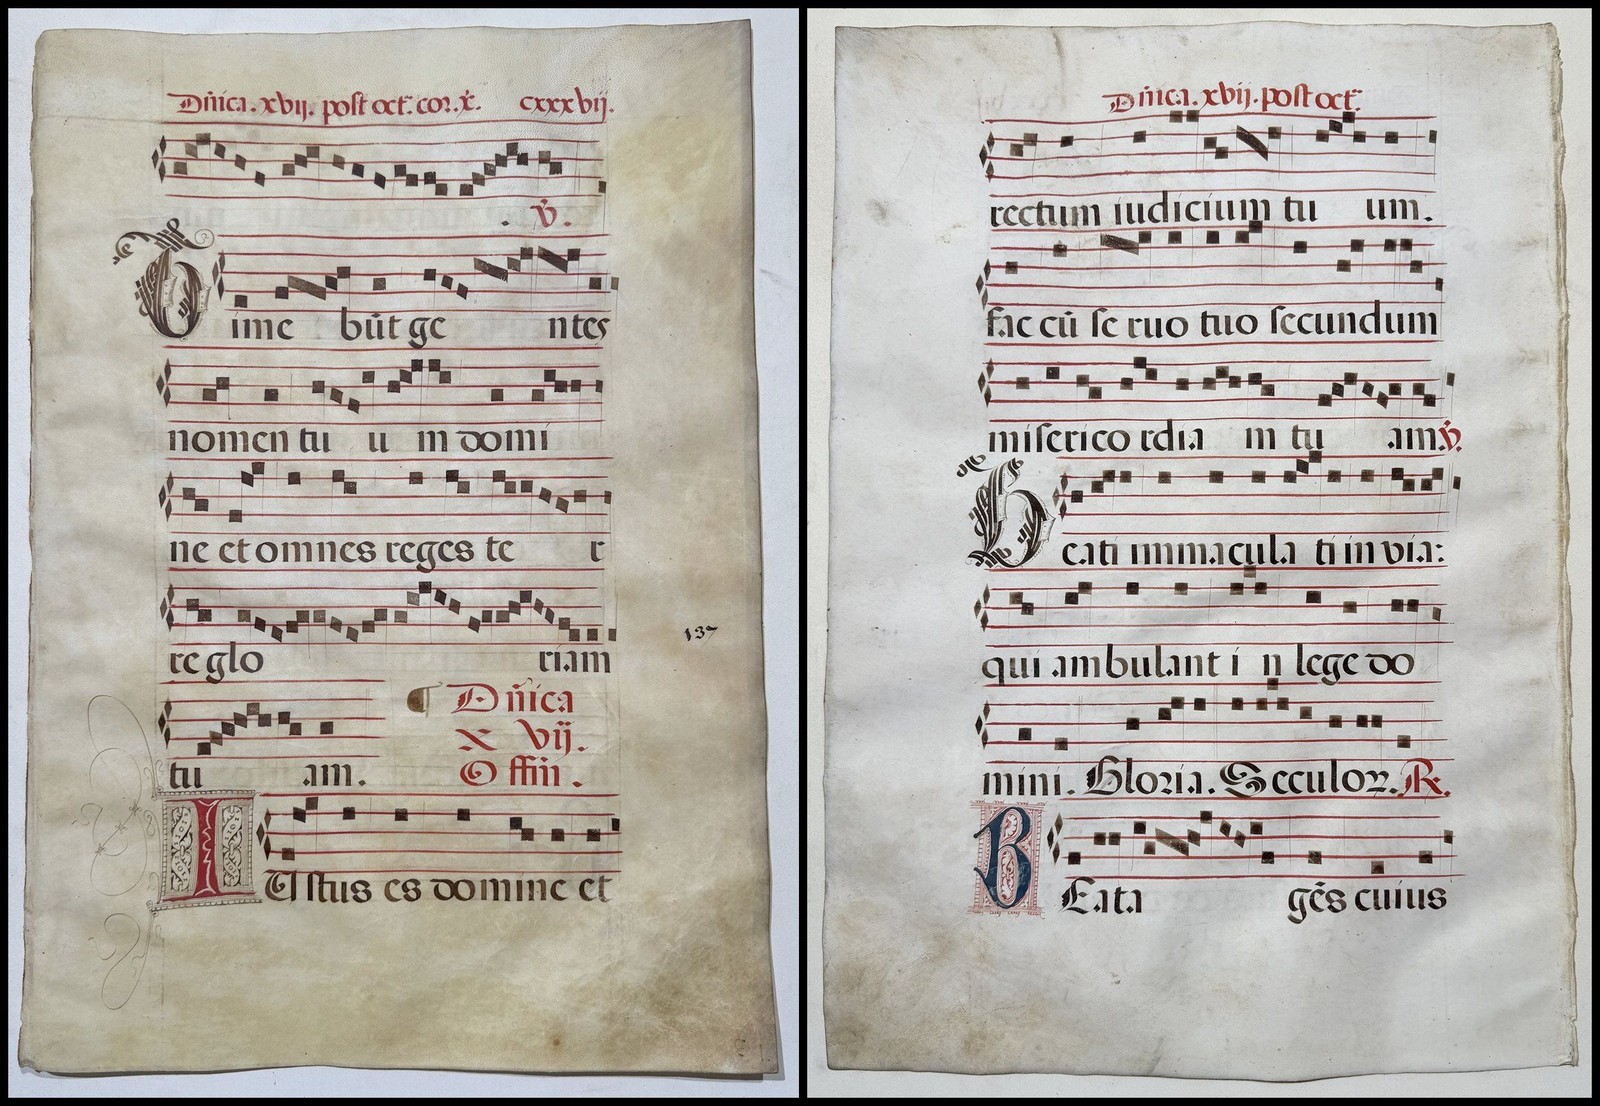 Dñica. xvij. post oct. cor. x̄. cxxxvij.
. ℣.
Time bũt ge ntes
nomen tu u m domi
ne et omnes reges te r
re glo riam
137
tu am.
¶ Dñica
xvij.
Offiñ.
IUstus es domine et
Dñica. xvij. post oct.
rectum iudicium tu um.
fac cũ se ruo tuo secundum
miserico rdia m tu am. ℣.
Beati immacula ti in via:
qui ambulant i n lege do
mini. Gloria. Seculoꝝ. ℟.
BEata gẽs cuius